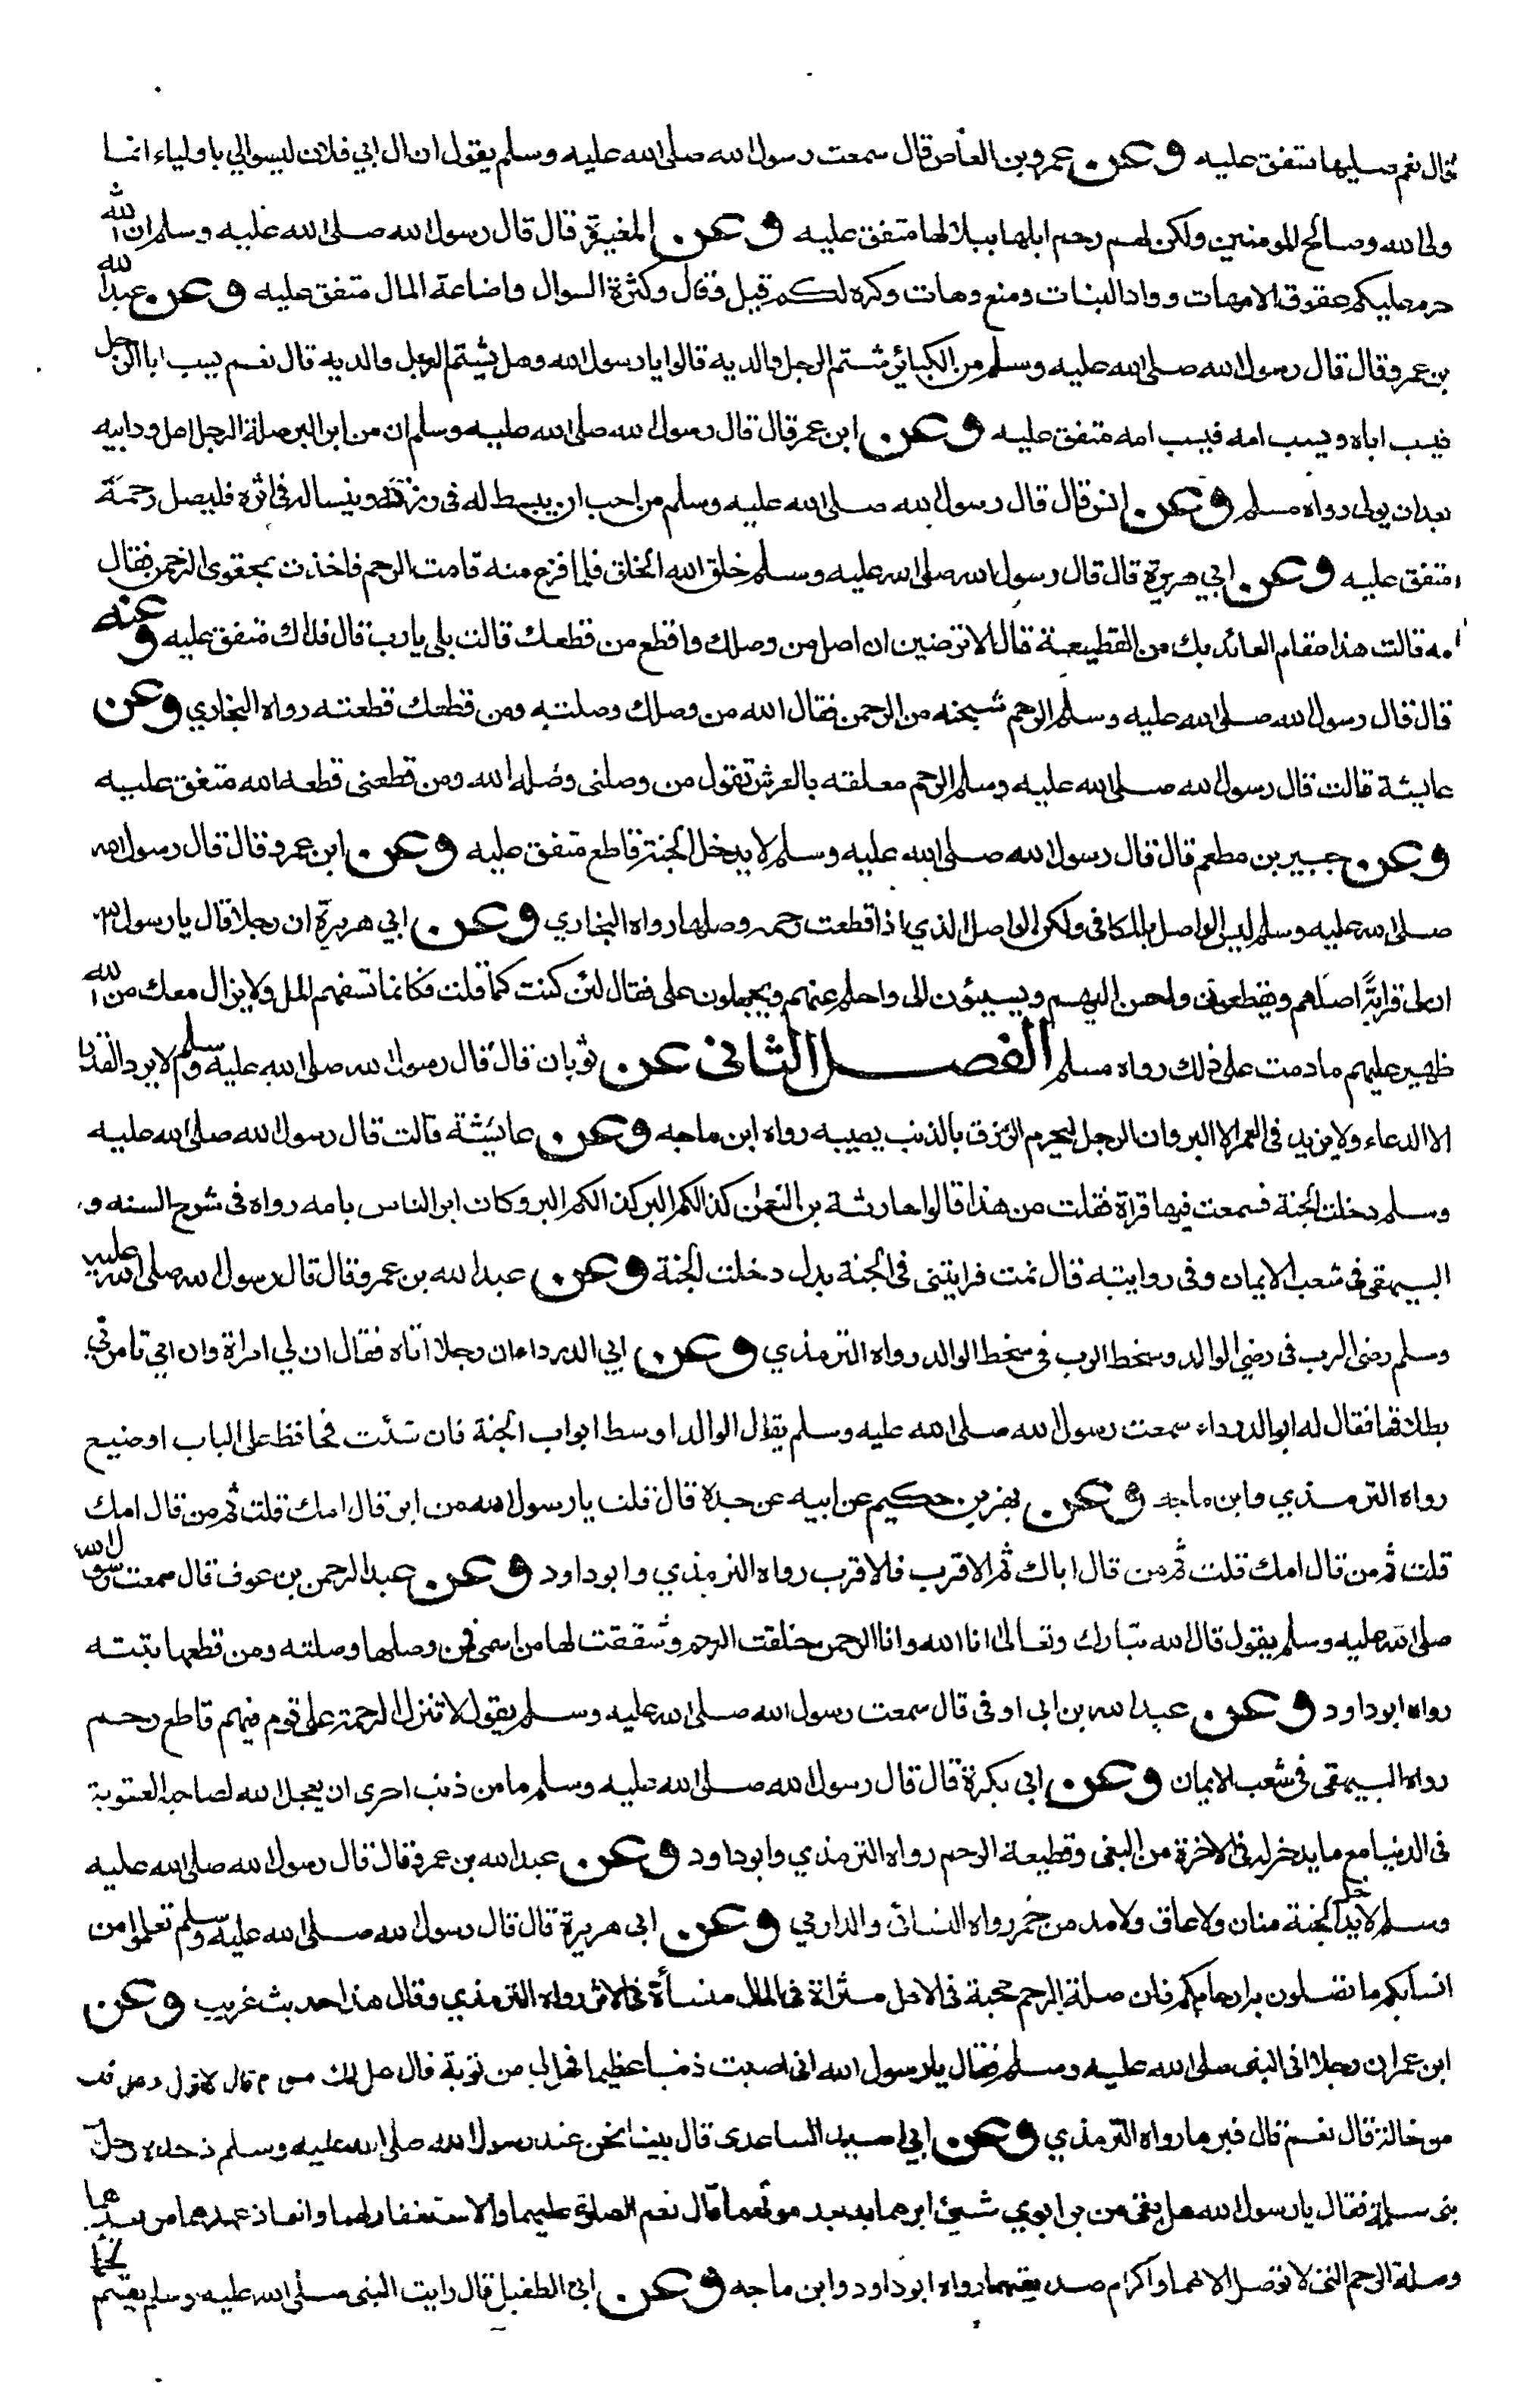 قال نعم صليها متفق عليه وعن عمرو بن العاص قال سمعت رسول الله صلى الله عليه وسلم يقول ان ال ابي فلان ليسوا لي باولياء انما
ولي الله وصالح المومنين ولكن لهم رحم ابلها ببلالها متفق عليه وعن المغيرة قال قال رسول الله صلى الله عليه وسلم ان الله
حرم عليكم عقوق الامهات وواد البنات ومنع وهات وكره لكم قيل وقال وكثرة السوال واضاعة المال متفق عليه وعن عبد الله
بن عمرو قال قال رسول الله صلى الله عليه وسلم من الكبائر شتم الرجل والديه قالوا يا رسول الله وهل يشتم الرجل والديه قال نعم يسب ابا الرجل
فيسب اباه ويسب امه فيسب امه متفق عليه وعن ابن عمر قال قال رسول الله صلى الله عليه وسلم ان من ابر البر صلة الرجل اهل ود ابيه
بعد ان يولى رواه مسلم وعن انس قال قال رسول الله صلى الله عليه وسلم من احب ان يبسط له في رزقه وينسا له في اثره فليصل رحمه
متفق عليه وعن ابي هريرة قال قال رسول الله صلى الله عليه وسلم خلق الله الخلق فلما فرغ منه قامت الرحم فاخذت بحقوي الرحمن فقال
مه قالت هذا مقام العائذ بك من القطيعة قال الا ترضين ان اصل من وصلك واقطع من قطعك قالت بلى يا رب قال فذاك متفق عليه وعنه
قال قال رسول الله صلى الله عليه وسلم الرحم شجنة من الرحمن فقال الله من وصلك وصلته ومن قطعك قطعته رواه البخاري وعن
عايشة قالت قال رسول الله صلى الله عليه وسلم الرحم معلقة بالعرش تقول من وصلني وصله الله ومن قطعني قطعه الله متفق عليه
وعن جبير بن مطعم قال قال رسول الله صلى الله عليه وسلم لا يدخل الجنة قاطع متفق عليه وعن ابن عمرو قال قال رسول الله
صلى الله عليه وسلم ليس الواصل بالمكافي ولكن الواصل الذي اذا قطعت رحمه وصلها رواه البخاري وعن ابي هريرة ان رجلا قال يا رسول الله
ان لي قرابة اصلهم ويقطعوني واحسن اليهم ويسيئون الي واحلم عنهم ويجهلون علي فقال لئن كنت كما قلت فكانما تسفهم المل ولا يزال معك من الله
ظهير عليهم ما دمت على ذلك رواه مسلم الفصل الثاني عن ثوبان قال قال رسول الله صلى الله عليه وسلم لا يرد القدر
الا الدعاء ولا يزيد في العمر الا البر وان الرجل ليحرم الرزق بالذنب يصيبه رواه ابن ماجه وعن عايشة قالت قال رسول الله صلى الله عليه
وسلم دخلت الجنة فسمعت فيها قراة فقلت من هذا قالوا حارثة بن النعمن كذلكم البر كذلكم البر وكان ابر الناس بامه رواه في شرح السنه و
البيهقي في شعب الايمان وفي روايته قال نمت فرايتني في الجنة بدل دخلت الجنة وعن عبد الله بن عمرو قال قال رسول الله صلى الله عليه
وسلم رضى الرب في رضى الوالد وسخط الرب في سخط الوالد رواه الترمذي وعن ابي الدرداء ان رجلا اتاه فقال ان لي امراة وان امي تامرني
بطلاقها فقال له ابو الدرداء سمعت رسول الله صلى الله عليه وسلم يقول الوالد اوسط ابواب الجنة فان شئت فحافظ على الباب او ضيع
رواه الترمذي وابن ماجه وعن بهز بن حكيم عن ابيه عن جده قال قلت يا رسول الله من ابر قال امك قلت ثم من قال امك
قلت ثم من قال امك قلت ثم من قال اباك ثم الاقرب فالاقرب رواه الترمذي وابو داود وعن عبد الرحمن بن عوف قال سمعت رسول الله
صلى الله عليه وسلم يقول قال الله تبارك وتعالى انا الله وانا الرحمن خلقت الرحم وشققت لها من اسمي فمن وصلها وصلته ومن قطعها بتته
رواه ابو داود وعن عبد الله بن ابي اوفى قال سمعت رسول الله صلى الله عليه وسلم يقول لا تنزل الرحمة على قوم فيهم قاطع رحم
رواه البيهقي في شعب الايمان وعن ابي بكرة قال قال رسول الله صلى الله عليه وسلم ما من ذنب احرى ان يعجل الله لصاحبه العقوبة
في الدنيا مع ما يدخر له في الاخرة من البغي وقطيعة الرحم رواه الترمذي وابو داود وعن عبد الله بن عمرو قال قال رسول الله صلى الله عليه
وسلم لا يدخل الجنة منان ولا عاق ولا مدمن خمر رواه النسائي والدارمي وعن ابي هريرة قال قال رسول الله صلى الله عليه وسلم تعلموا من
انسابكم ما تصلون به ارحامكم فان صلة الرحم محبة في الاهل مثراة في المال منسأة في الاثر رواه الترمذي وقال هذا حديث غريب وعن
ابن عمر ان رجلا اتى النبي صلى الله عليه وسلم فقال يا رسول الله اني اصبت ذنبا عظيما فهل لي من توبة قال هل لك من ام قال لا قال وهل لك
من خالة قال نعم قال فبرها رواه الترمذي وعن ابي اسيد الساعدي قال بينا نحن عند رسول الله صلى الله عليه وسلم اذ جاءه رجل
بني سلمة فقال يا رسول الله هل بقي من بر ابوي شيئ ابرهما به بعد موتهما قال نعم الصلوة عليهما والاستغفار لهما وانفاذ عهدهما من بعدهما
وصلة الرحم التي لا توصل الا بهما واكرام صديقهما رواه ابو داود وابن ماجه وعن ابي الطفيل قال رايت النبي صلى الله عليه وسلم يقسم لحما